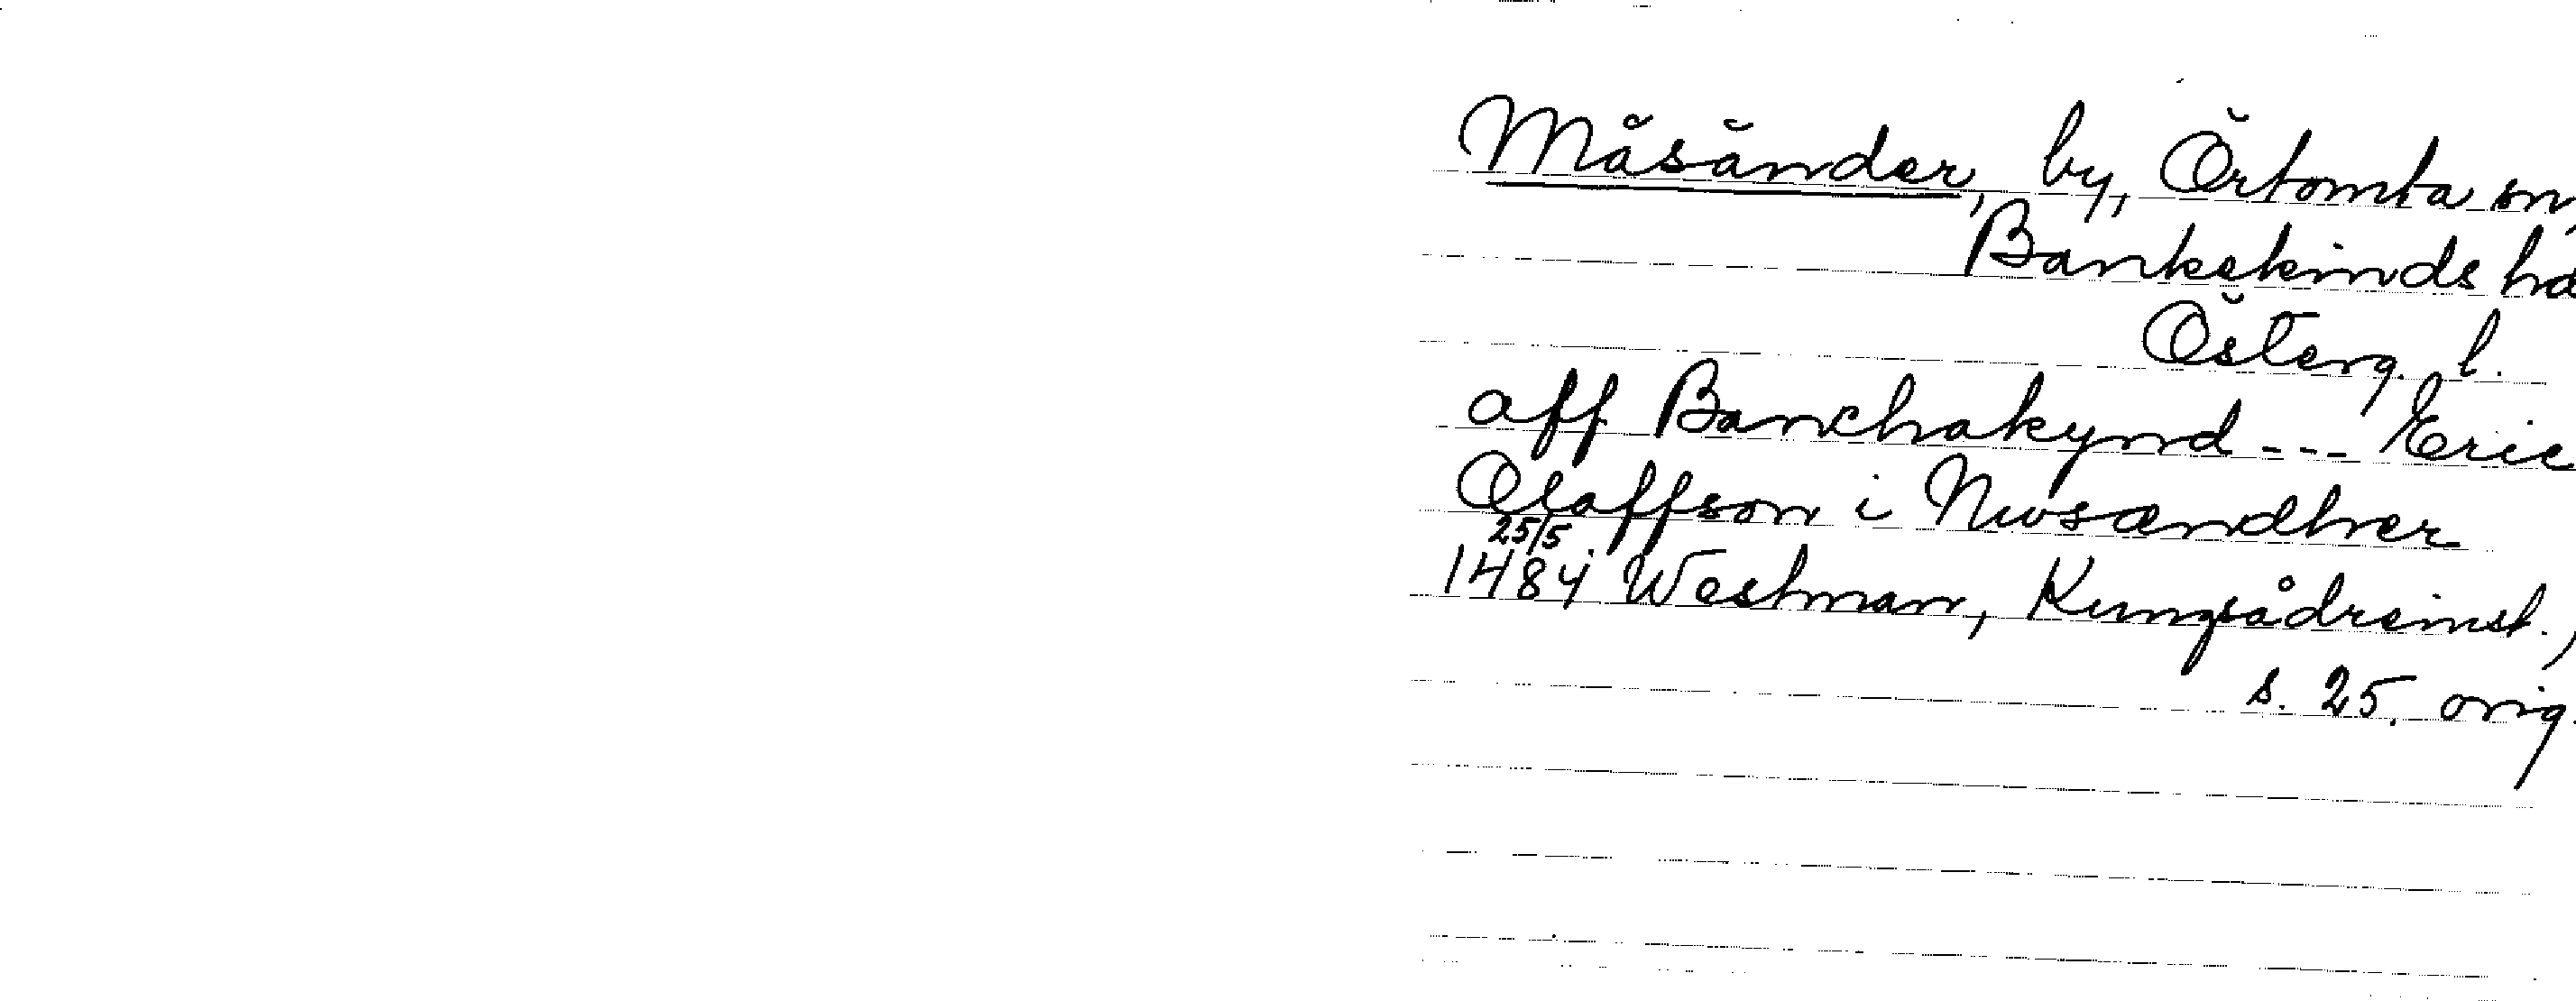 Måsänder, by, Örtomta sn,
Bankekinds hd
Österg. l.
aff Banchakynd --- Eric
Olaffson i Mwsændher
25/5
1484 Westman, Kungsådreinst.,
s. 25. orig.